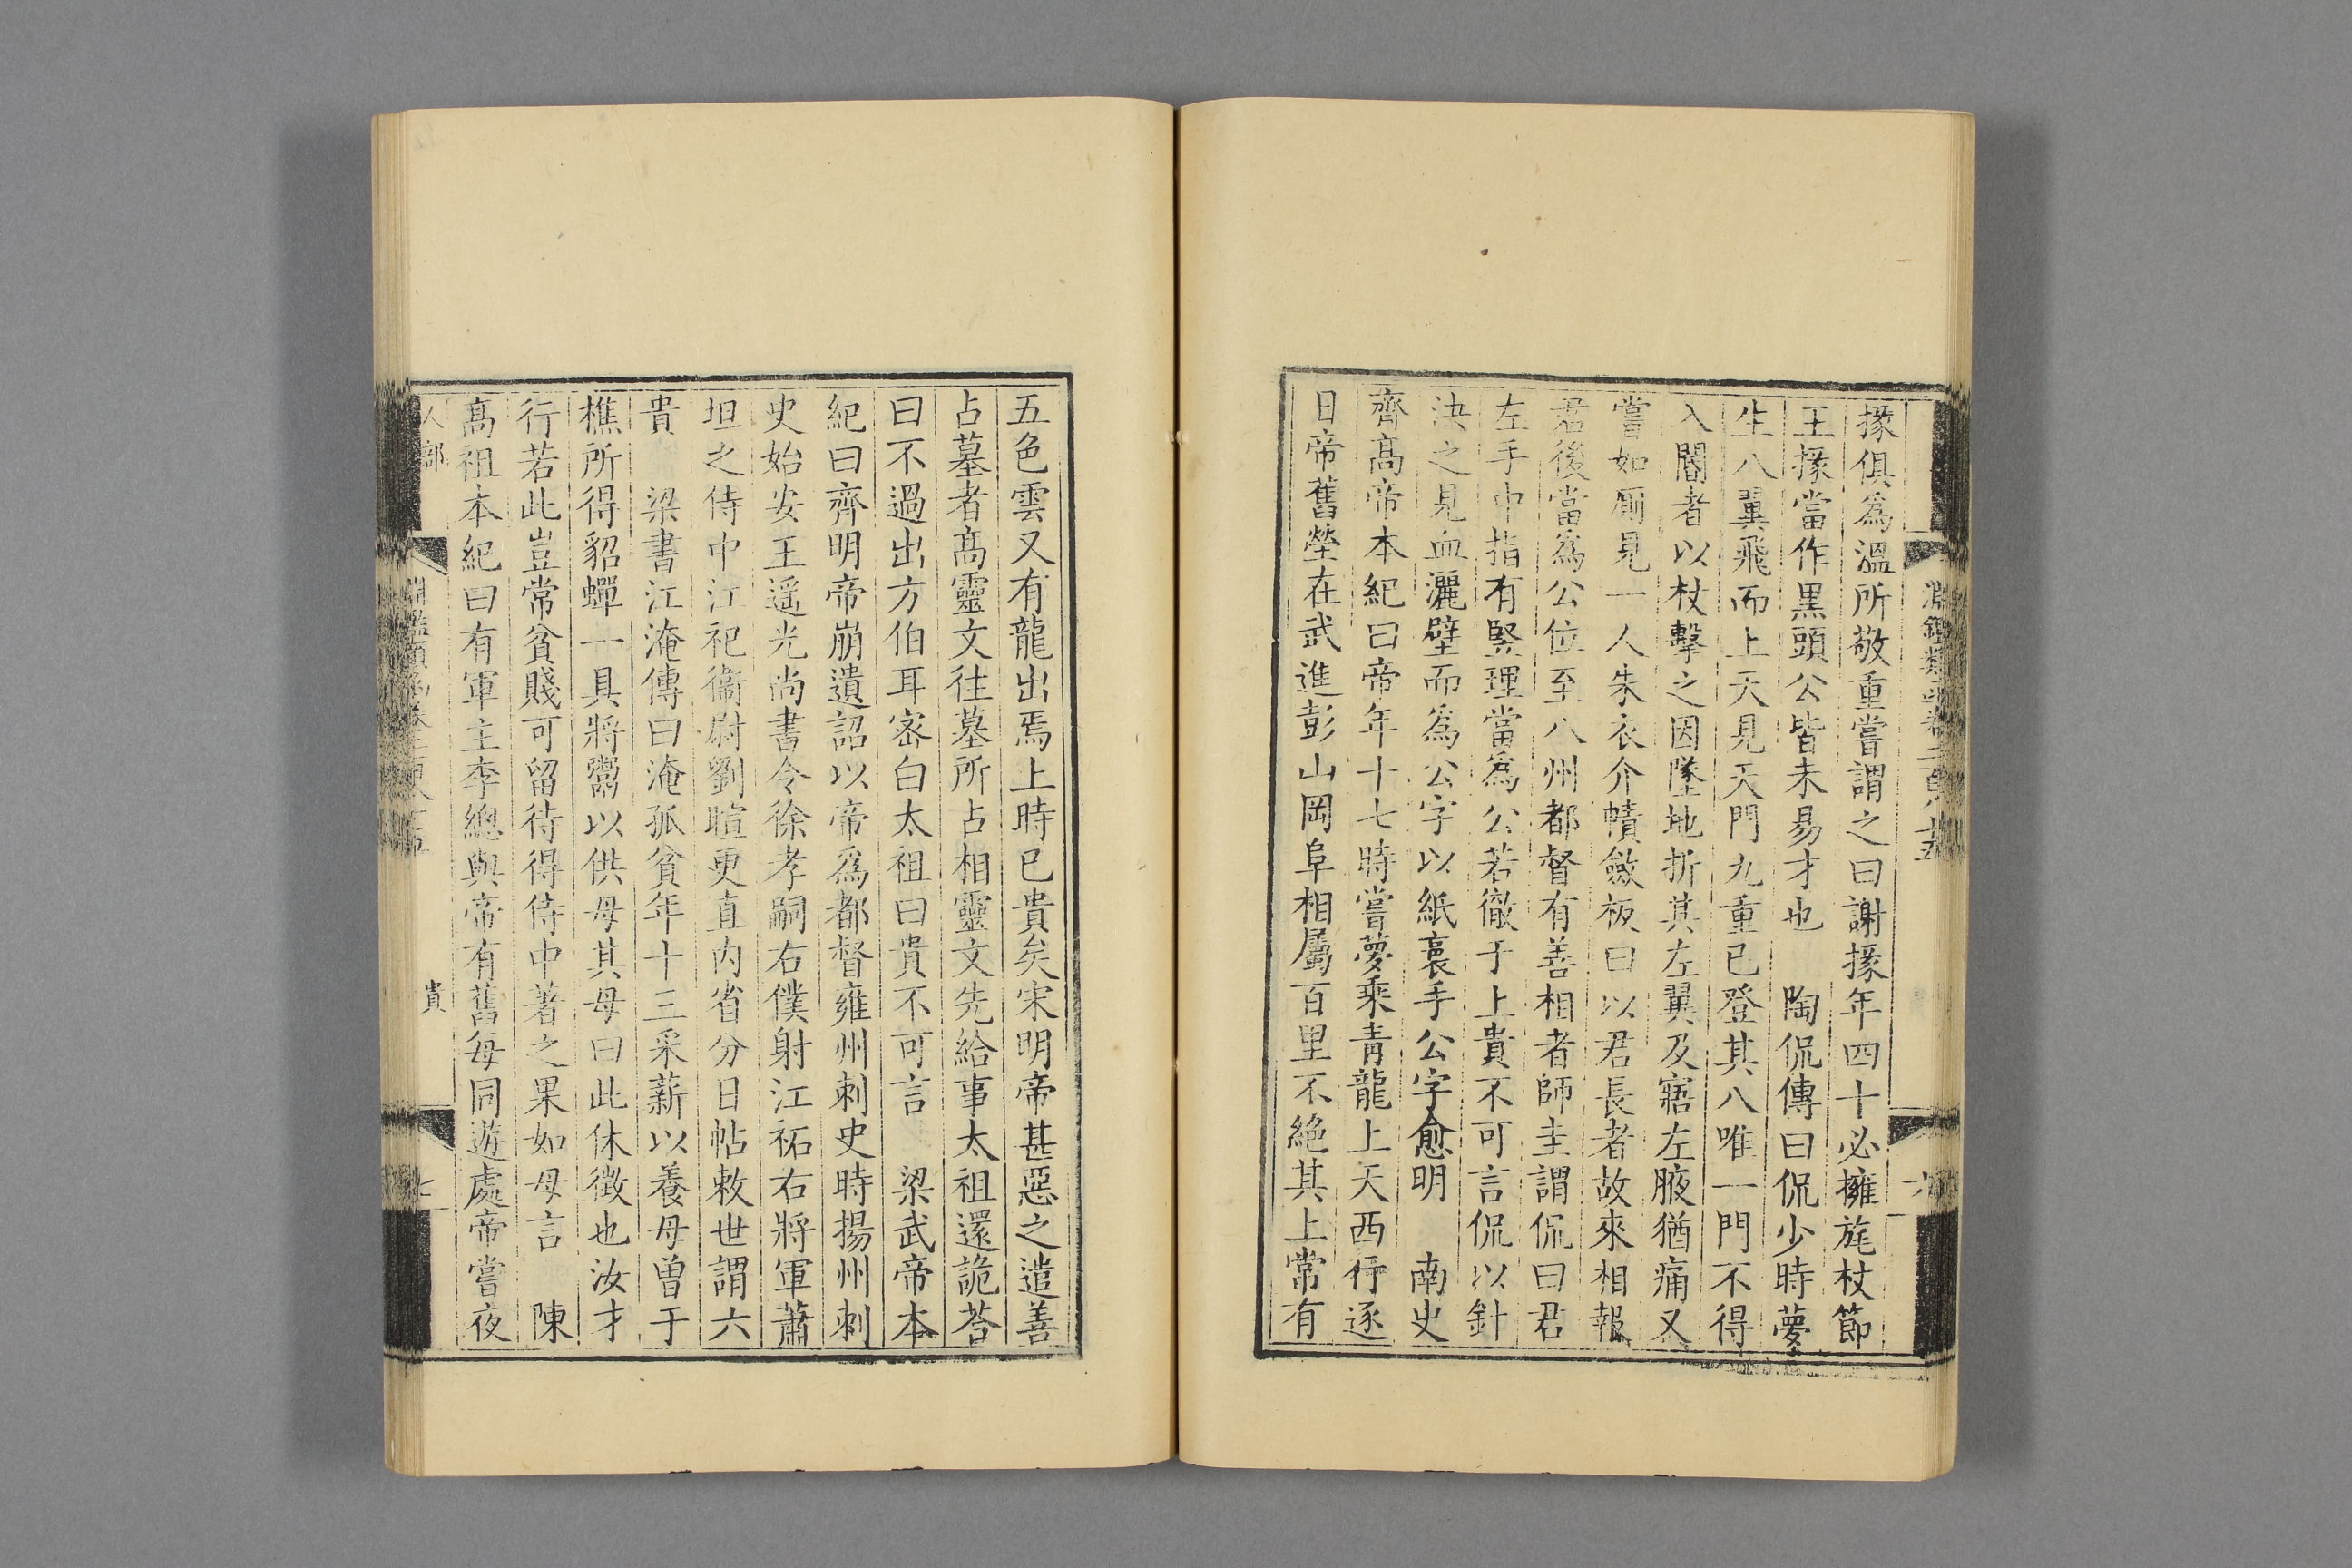 掾俱爲溫所敬重嘗謂之曰謝掾年四十必擁旄杖節
王掾當作黑頭公皆未易才也　陶侃傳曰侃少時夢
生八翼飛而上天見天門九重已登其八唯一門不得
入閽者以杖擊之因墜地折其左翼及寤左腋猶痛又
嘗如厠見一人朱衣介幘斂板曰以君長者故來相報
君後當爲公位至八州都督有善相者師圭謂侃曰君
左手中指有竪理當爲公若徹于上貴不可言侃以針
決之見血灑壁而爲公字以紙裛手公字愈明　南史
齊高帝本紀曰帝年十七時嘗夢乘青龍上天西行逐
日帝舊塋在武進彭山岡阜相屬百里不絶其上常有
五色雲又有龍出焉上時已貴矣宋明帝甚惡之遣善
占墓者高靈文往墓所占相靈文先給事太祖還詭荅
曰不過出方伯耳密白太祖曰貴不可言　梁武帝本
紀曰齊明帝崩遺詔以帝爲都督雍州刺史時揚州刺
史始安王遥光尚書令徐孝嗣右僕射江祏右將軍蕭
坦之侍中江祀衞尉劉暄更直内省分日帖敕世謂六
貴　梁書江淹傳曰淹孤貧年十三采薪以養母曾于
樵所得貂蟬一具將鬻以供母其母曰此休徵也汝才
行若此豈常貧賤可留待得侍中著之果如母言　陳
高祖本紀曰有軍主李總與帝有舊每同遊處帝嘗夜
人部
貴